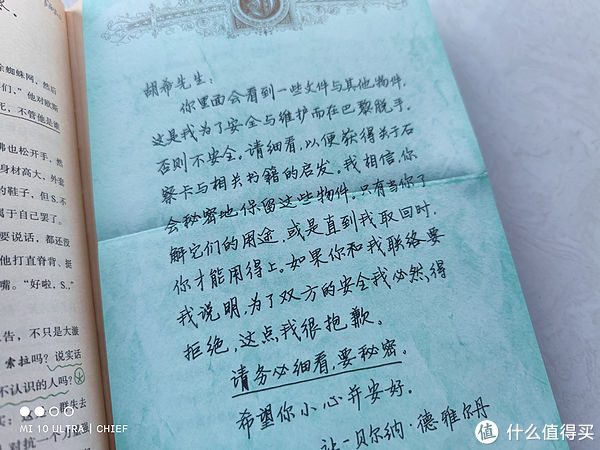 蜘蛛网，然后
们，”他对欧斯
死，不管他是谁
佛也松开手，然
身材高大，外套
的鞋子，但S.不
属于自己罢了。
要说话，都还没
他打直脊背、挺
嘴。“好啦，S.，”
告，不只是大漩
索拉吗？说实话
不认识的人吗？
群失去
对抗一个力量
胡希先生：
你里面会看到一些文件与其他物件，
这是我为了安全与维护而在巴黎脱手，
否则不安全。请细看，以便获得关于石
察卡与相关书籍的启发。我相信，你
会秘密地保留这些物件。只有当你了
解它们的用途，或是直到我取回时，
你才能用得上。如果你和我联络要
我说明，为了双方的安全我必然得
拒绝，这点我很抱歉。
请务必细看，要秘密。
希望你小心并安好。
让-贝尔纳·德雅尔丹
MI 10 ULTRA | CHIEF
值 什么值得买